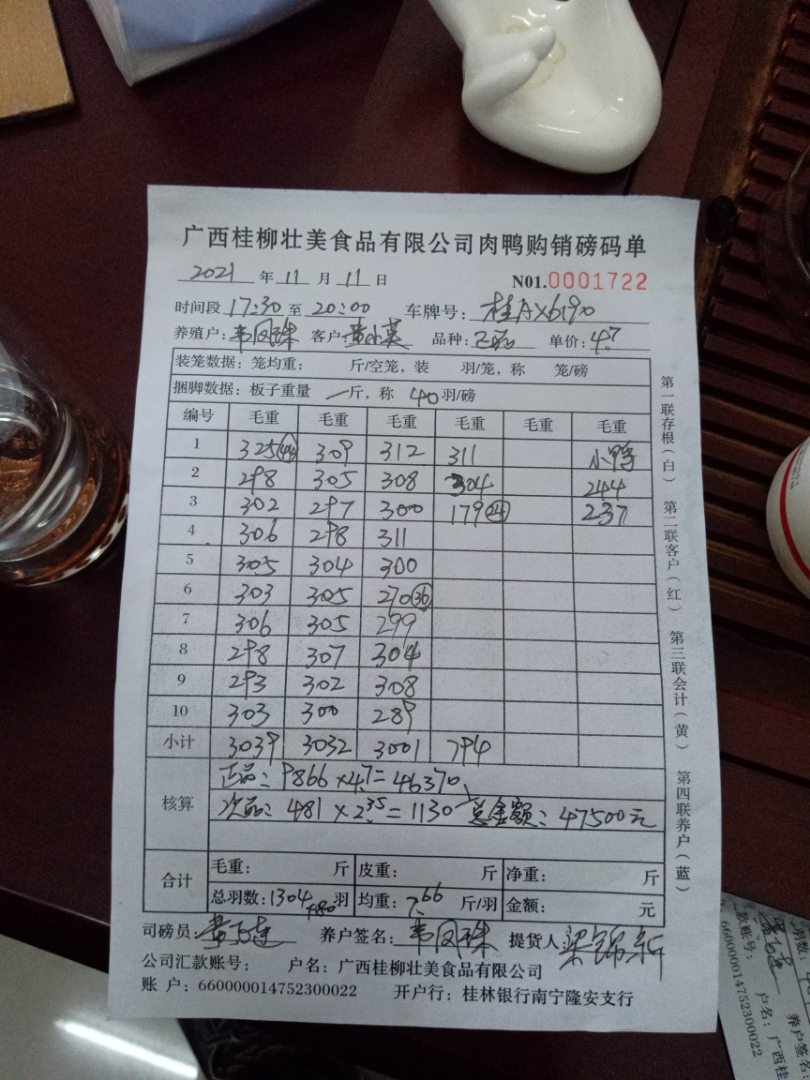 广西桂柳壮美食品有限公司肉鸭购销磅码单
2021 年 11 月 11 日 N01.0001722
时间段 17:30 至 20:00 车牌号: 桂AX6190
养殖户: 韦凤珠 客户: 黄小英 品种: 单价: 4.7
装笼数据: 笼均重: 斤/空笼, 装 羽/笼, 称 笼/磅
捆脚数据: 板子重量 一斤, 称 40 羽/磅
编号 毛重 毛重 毛重 毛重 毛重 毛重
1 325 309 312 311 小鸭
2 298 305 308 304 244
3 302 297 300 179 24 237
4 306 298 311
5 305 304 300
6 303 305 270 36
7 306 305 299
8 298 307 304
9 293 302 308
10 303 300 289
小计 3039 3032 3001 794
核算
正品: 9866×4.7=46370
次品: 481×2.35=1130 总金额: 47500元
合计
毛重: 斤 皮重: 斤 净重: 斤
总羽数: 1304 +80 羽 均重: 7.66 斤/羽 金额: 元
司磅员: 养户签名: 韦凤珠 提货人: 梁锦新
公司汇款账号: 户名: 广西桂柳壮美食品有限公司
账 户: 660000014752300022 开户行: 桂林银行南宁隆安支行
第一联存根(白) 第二联客户(红) 第三联会计(黄) 第四联养户(蓝)
羽数:
款账号:
660000014752300022
养户签名
户名: 广西桂